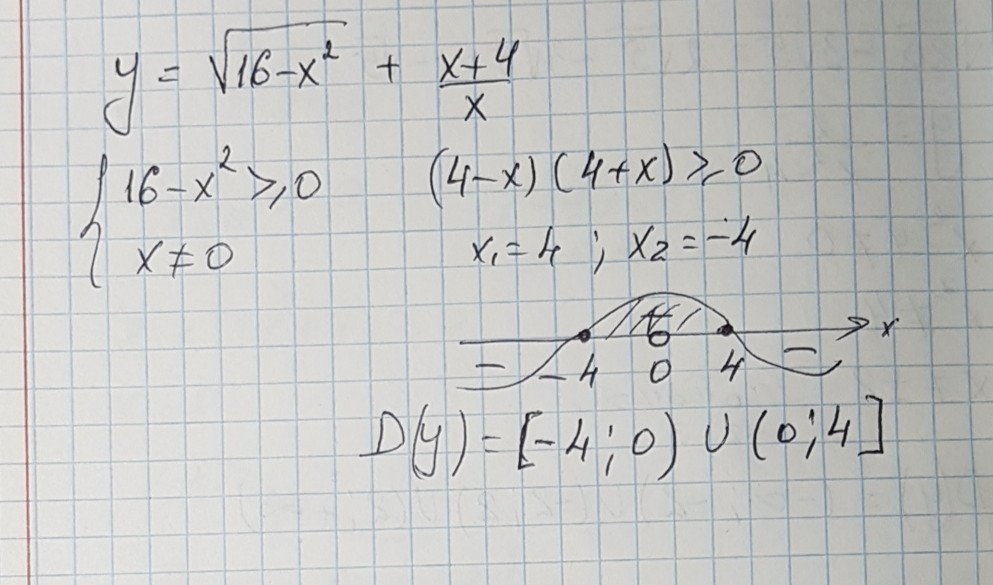 y = √(16-x²) + (x+4)/x
{ 16-x² ⩾ 0
x ≠ 0
(4-x)(4+x) ⩾ 0
x₁ = 4 ; x₂ = -4
+
x
− −4 0 4 −
D(y) = [-4; 0) ∪ (0; 4]